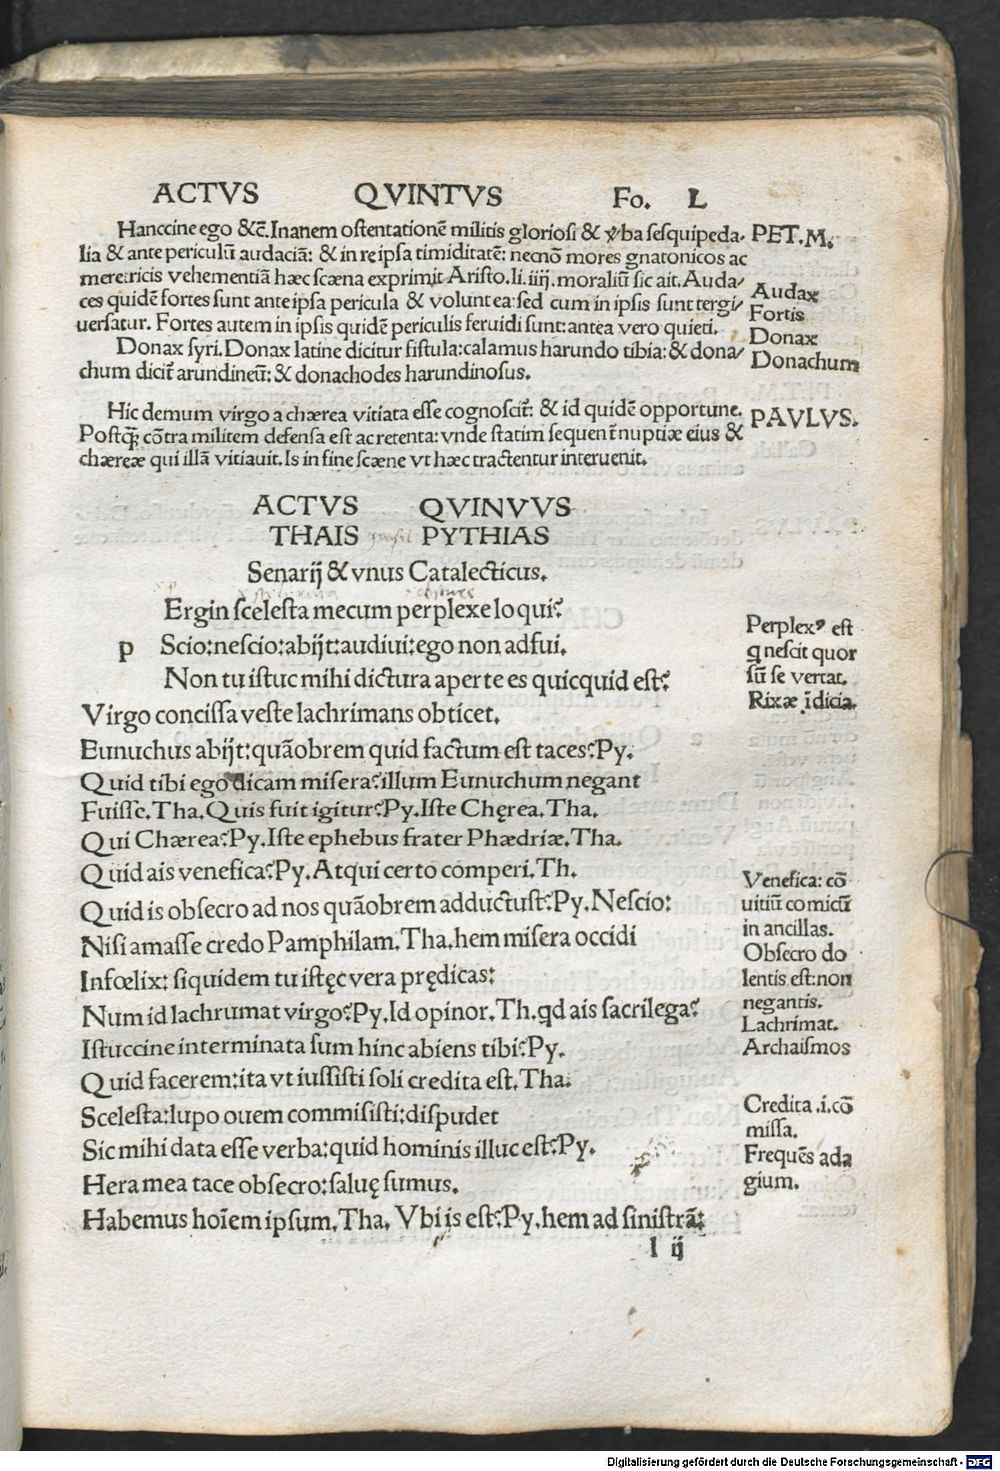 ACTVS QVINTVS Fo. L
Hanccine ego &c̄. Inanem ostentationē militis gloriosi & ꝟba sesquipeda-
lia & ante periculū audaciā: & in re ipsa timiditatē: necnō mores gnatonicos ac
meretricis vehementiā hæc scæna exprimit Aristo. li. iiij. moraliū sic ait. Auda/
ces quidē fortes sunt ante ipsa pericula & voluntea: sed cum in ipsis sunt tergi/
uersatur. Fortes autem in ipsis quidē periculis feruidi sunt: antea vero quieti.
Donax syri. Donax latine dicitur fistula: calamus harundo tibia: & dona/
chum dicit̄ arundineū: & donachodes harundinosus.
PET. M.
Audax
Fortis
Donax
Donachum
Hic demum virgo a chærea vitiata esse cognoscit̄: & id quidē opportune.
Postꝙ̄ cōtra militem defensa est ac retenta: vnde statim sequent̄ nuptiæ eius &
chæreæ qui illā vitiauit. Is in fine scæne vt hæc tractentur interuenit.
PAVLVS.
ACTVS QVINVVS
THAIS PYTHIAS
Senarij & vnus Catalecticus.
Ergin scelesta mecum perplexe loqui?
p Scio: nescio: abijt: audiui: ego non adfui.
Non tu istuc mihi dictura aperte es quicquid est?
Virgo concissa veste lachrimans obticet.
Eunuchus abijt: quāobrem quid factum est taces? Py.
Quid tibi ego dicam misera? illum Eunuchum negant
Fuisse. Tha. Quis fuit igitur? Py. Iste Chęrea. Tha.
Qui Chærea? Py. Iste ephebus frater Phædriæ. Tha.
Quid ais venefica? Py. Atqui certo comperi. Th.
Quid is obsecro ad nos quāobrem adductust? Py. Nescio:
Nisi amasse credo Pamphilam. Tha. hem misera occidi
Infœlix: siquidem tu istęc vera prędicas:
Num id lachrumat virgo? Py. Id opinor. Th. qd ais sacrilega?
Istuccine interminata sum hinc abiens tibi? Py.
Quid facerem: ita vt iussisti soli credita est. Tha.
Scelesta: lupo ouem commisisti: dispudet
Sic mihi data esse verba: quid hominis illuc est? Py.
Hera mea tace obsecro: saluę sumus.
Habemus hoīem ipsum. Tha. Vbi is est? Py. hem ad sinistrā:
Perplexꝰ est
q nescit quor
sū se vertat.
Rixæ īdicia.
Venefica: cō
uitiū comicū
in ancillas.
Obsecro do
lentis est: non
negantis.
Lachrimat.
Archaismos
Credita .i. cō
missa.
Frequēs ada
gium.
l ij
Digitalisierung gefördert durch die Deutsche Forschungsgemeinschaft - DFG